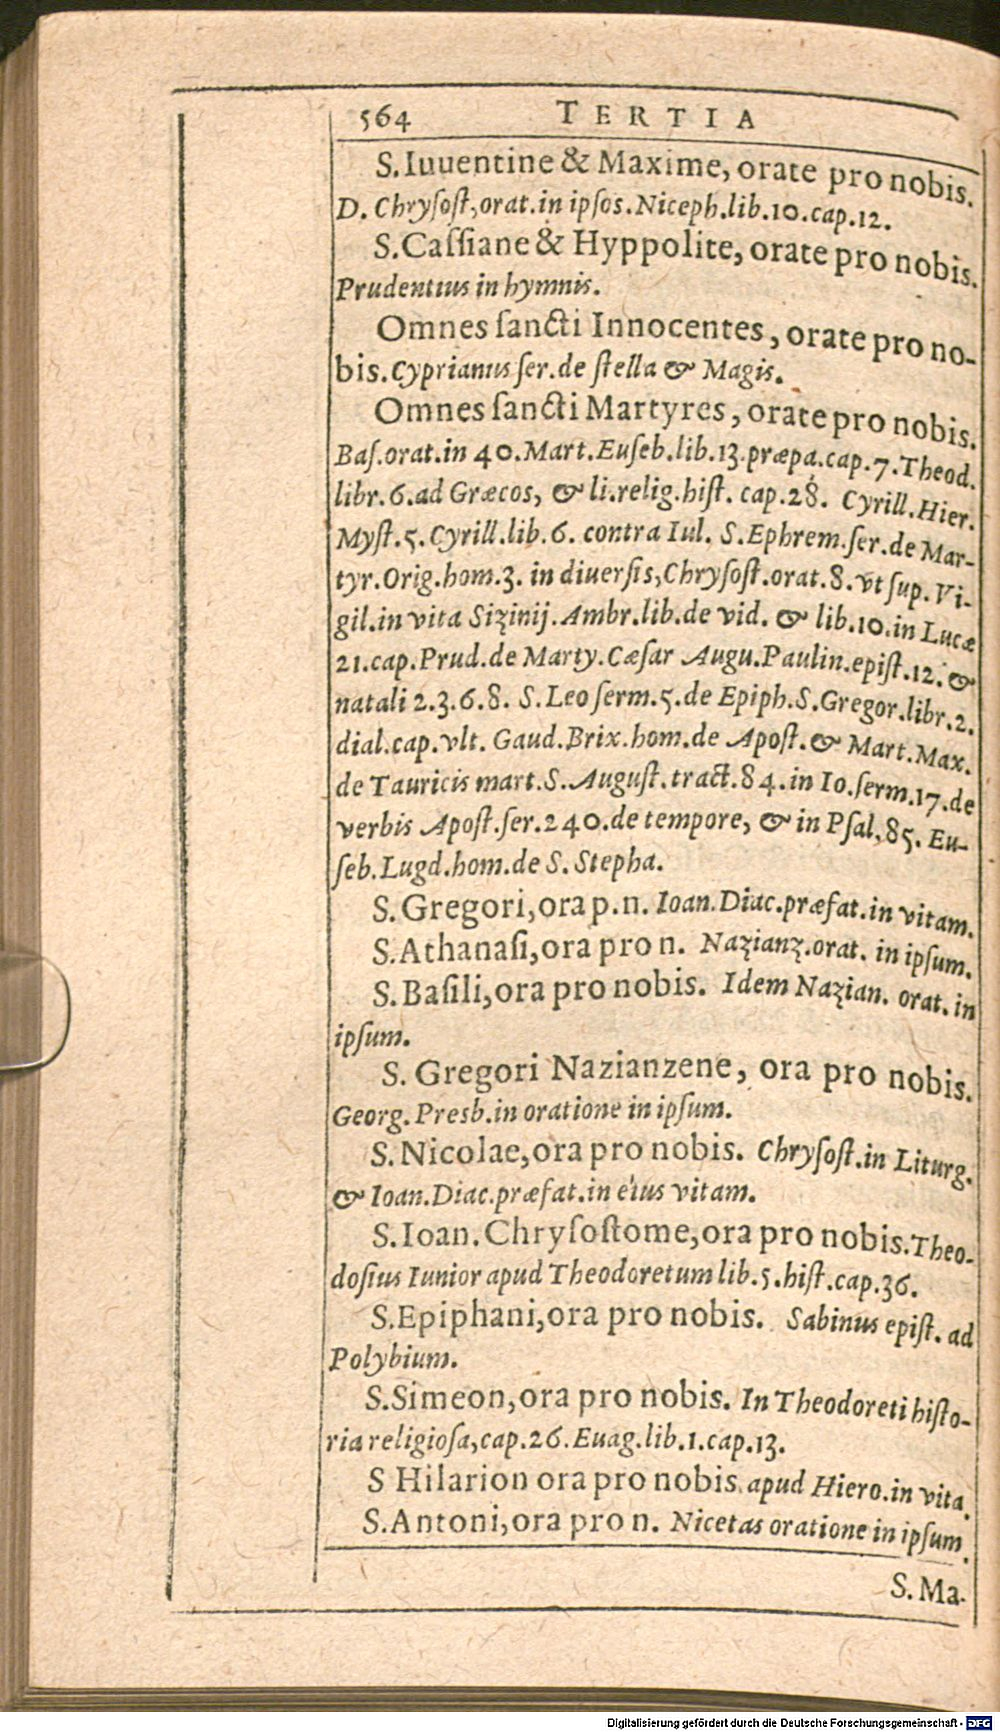 564 TERTIA
S. Iuuentine & Maxime, orate pro nobis.
D. Chrysoſt, orat. in ipſos. Niceph. lib. 10. cap. 12.
S. Caſſiane & Hyppolite, orate pro nobis.
Prudentius in hymnis.
Omnes ſancti Innocentes, orate pro no-
bis. Cyprianus ſer. de ſtella & Magis.
Omnes ſancti Martyres, orate pro nobis.
Baſ. orat. in 40. Mart. Euſeb. lib. 13. præpa. cap. 7. Theod.
libr. 6. ad Græcos, & li. relig. hiſt. cap. 28. Cyrill. Hier.
Myſt. 5. Cyrill. lib. 6. contra Iul. S. Ephrem. ſer. de Mar-
tyr. Orig. hom. 3. in diuerſis, Chryſoſt. orat. 8. vt ſup. Vi-
gil. in vita Sizinij. Ambr. lib. de vid. & lib. 10. in Lucæ
21. cap. Prud. de Marty. Cæſar Augu. Paulin. epiſt. 12. &
natali 2. 3. 6. 8. S. Leo ſerm. 5. de Epiph. S. Gregor. libr. 2.
dial. cap. vlt. Gaud. Brix. hom. de Apoſt. & Mart. Max.
de Tauricis mart. S. Auguſt. tract. 84. in Io. ſerm. 17. de
verbis Apoſt. ſer. 240. de tempore, & in Pſal. 85. Eu-
ſeb. Lugd. hom. de S. Stepha.
S. Gregori, ora p. n. Ioan. Diac. præfat. in vitam.
S. Athanaſi, ora pro n. Nazianz. orat. in ipſum.
S. Baſili, ora pro nobis. Idem Nazian. orat. in
ipſum.
S. Gregori Nazianzene, ora pro nobis.
Georg. Presb. in oratione in ipſum.
S. Nicolae, ora pro nobis. Chryſoſt. in Liturg.
& Ioan. Diac. præfat. in eius vitam.
S. Ioan. Chryſoſtome, ora pro nobis. Theo-
doſius Iunior apud Theodoretum lib. 5. hiſt. cap. 36.
S. Epiphani, ora pro nobis. Sabinus epiſt. ad
Polybium.
S. Simeon, ora pro nobis. In Theodoreti hiſto-
ria religioſa, cap. 26. Euag. lib. 1. cap. 13.
S Hilarion ora pro nobis. apud Hiero. in vita.
S. Antoni, ora pro n. Nicetas oratione in ipſum.
S. Ma-
Digitalisierung gefördert durch die Deutsche Forschungsgemeinschaft - DFG